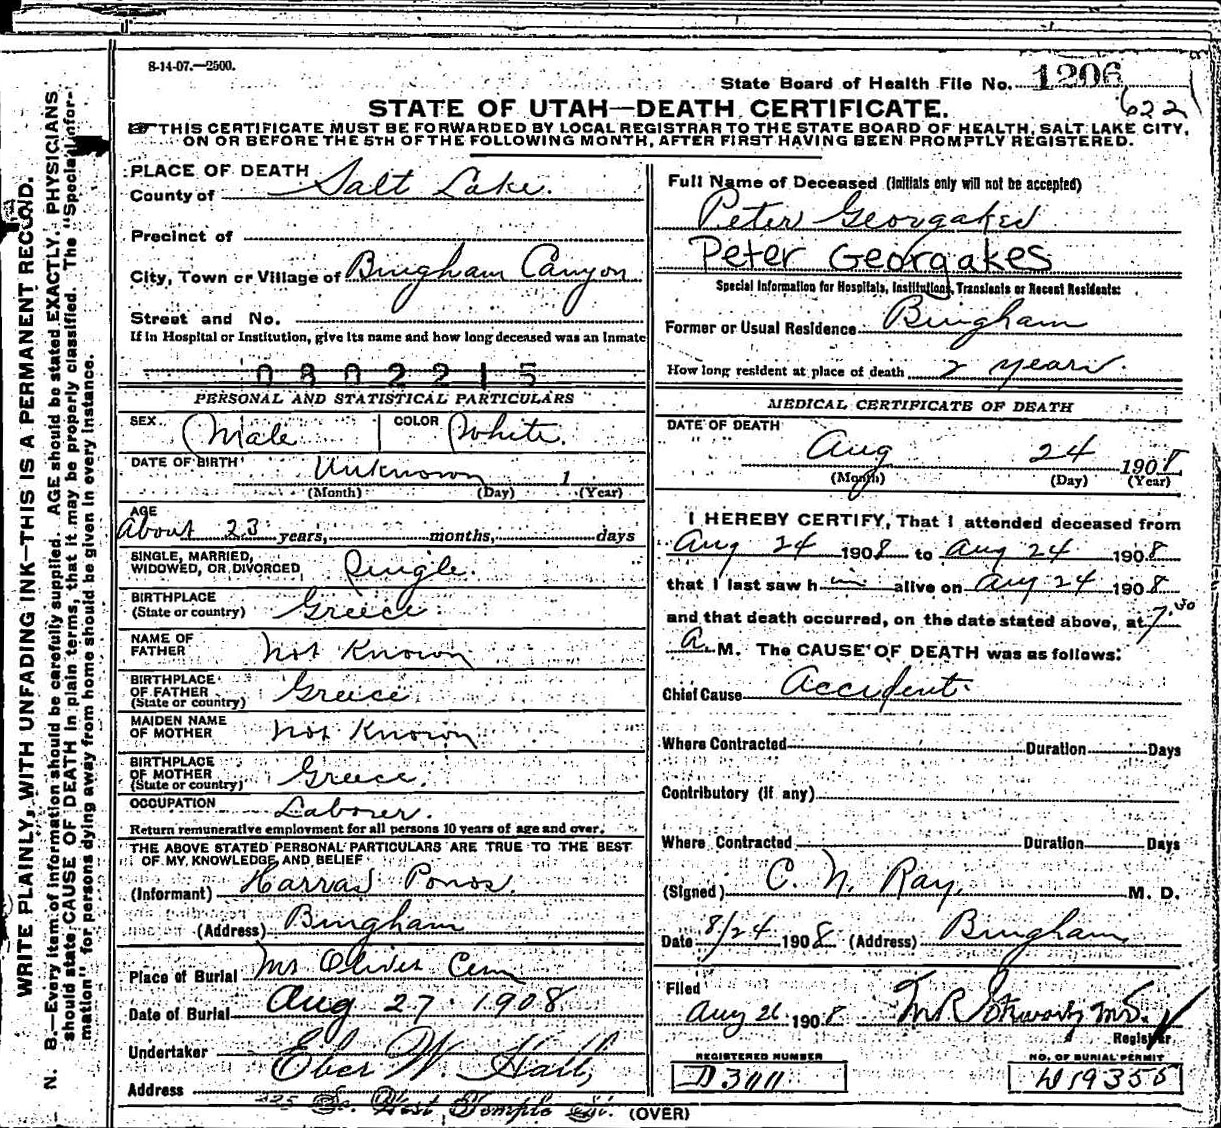 8-14-07.—2500.
State Board of Health File No. 1206
622
STATE OF UTAH—DEATH CERTIFICATE.
☞ THIS CERTIFICATE MUST BE FORWARDED BY LOCAL REGISTRAR TO THE STATE BOARD OF HEALTH, SALT LAKE CITY,
ON OR BEFORE THE 5TH OF THE FOLLOWING MONTH, AFTER FIRST HAVING BEEN PROMPTLY REGISTERED.
WRITE PLAINLY, WITH UNFADING INK—THIS IS A PERMANENT RECORD.
N. B.—Every item of information should be carefully supplied. AGE should be stated EXACTLY. PHYSICIANS
should state CAUSE OF DEATH in plain terms, that it may be properly classified. The "Special Infor-
mation" for persons dying away from home should be given in every instance.
PLACE OF DEATH
County of Salt Lake.
Precinct of
City, Town or Village of Bingham Canyon
Street and No.
If in Hospital or Institution, give its name and how long deceased was an Inmate
0802215
PERSONAL AND STATISTICAL PARTICULARS
SEX Male COLOR White.
DATE OF BIRTH Unknown 1
(Month) (Day) (Year)
AGE
About 23 years, months, days
SINGLE, MARRIED,
WIDOWED, OR DIVORCED Single.
BIRTHPLACE
(State or country) Greece.
NAME OF
FATHER Not Known
BIRTHPLACE
OF FATHER
(State or country) Greece
MAIDEN NAME
OF MOTHER Not Known
BIRTHPLACE
OF MOTHER
(State or country) Greece.
OCCUPATION Laborer.
Return remunerative employment for all persons 10 years of age and over.
THE ABOVE STATED PERSONAL PARTICULARS ARE TRUE TO THE BEST
OF MY KNOWLEDGE AND BELIEF
(Informant) Harras Ponos.
(Address) Bingham
Place of Burial Mt Olivet Cem
Date of Burial Aug 27. 1908
Undertaker Eber W. Hall,
Address 225 So. West Temple St.
Full Name of Deceased (Initials only will not be accepted)
Peter Georgakes
Peter Georgakes
Special Information for Hospitals, Institutions, Transients or Recent Residents:
Former or Usual Residence Bingham
How long resident at place of death 2 years.
MEDICAL CERTIFICATE OF DEATH
DATE OF DEATH
Aug 24 1908
(Month) (Day) (Year)
I HEREBY CERTIFY, That I attended deceased from
Aug 24 1908 to Aug 24 1908
that I last saw h im alive on Aug 24 1908
and that death occurred, on the date stated above, at 7.30
A. M. The CAUSE OF DEATH was as follows:
Chief Cause Accident.
Where Contracted Duration Days
Contributory (if any)
Where Contracted Duration Days
(Signed) C. N. Ray, M. D.
Date 8/24 1908 (Address) Bingham
Filed
Aug 26 1908
Registrar.
REGISTERED NUMBER
D3011
NO. OF BURIAL PERMIT
W19355
(OVER)